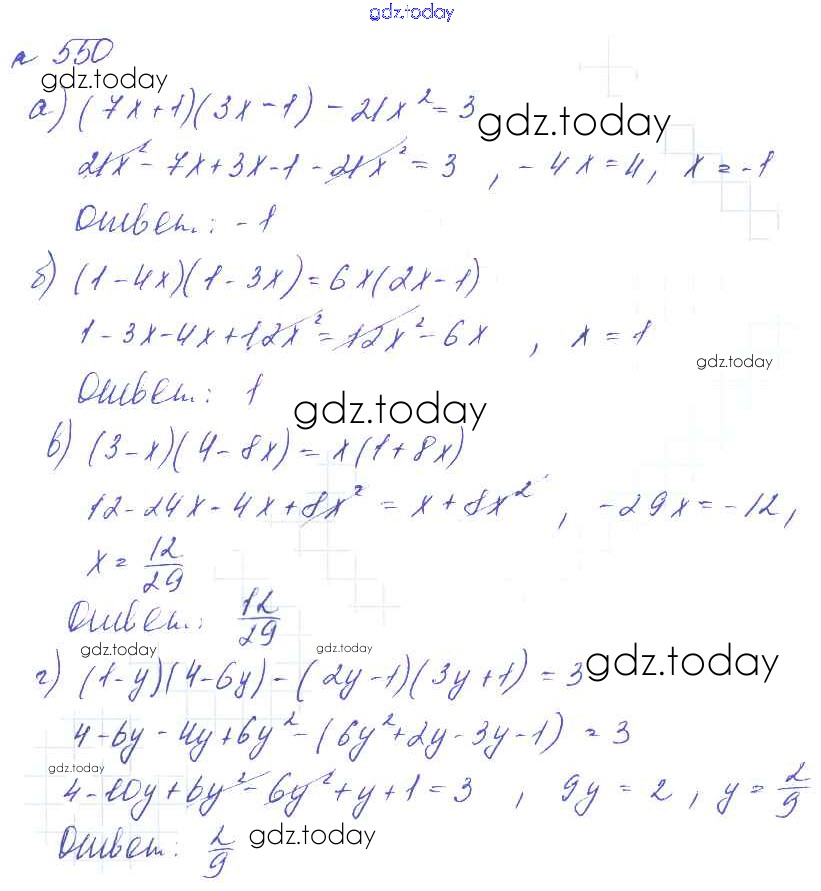 gdz.today
№ 550
gdz.today
а) (7x+1)(3x-1) - 21x² = 3
gdz.today
21x² - 7x + 3x - 1 - 21x² = 3 , - 4x = 4, x = -1
Ответ: -1
б) (1-4x)(1-3x) = 6x(2x-1)
1 - 3x - 4x + 12x² = 12x² - 6x , x = 1
gdz.today
Ответ: 1
gdz.today
в) (3-x)(4-8x) = x(1+8x)
12 - 24x - 4x + 8x² = x + 8x² , -29x = -12,
x = 12/29
Ответ: 12/29
gdz.today gdz.today gdz.today
г) (1-y)(4-6y) - (2y-1)(3y+1) = 3
4 - 6y - 4y + 6y² - (6y² + 2y - 3y - 1) = 3
gdz.today
4 - 10y + 6y² - 6y² + y + 1 = 3 , 9y = 2 , y = 2/9
Ответ: 2/9
gdz.today gdz.today